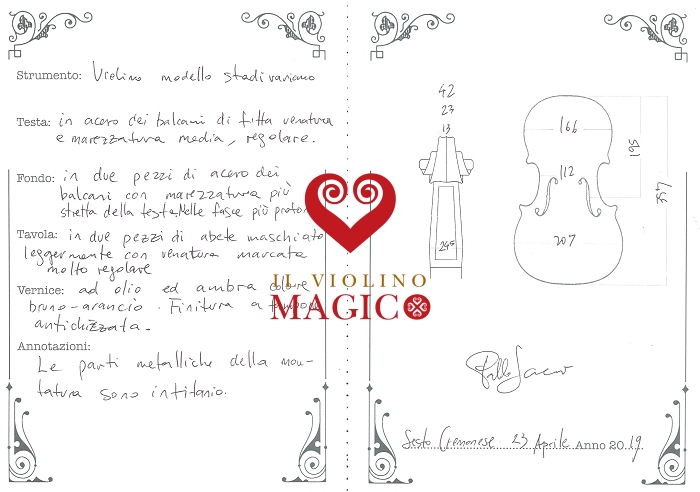 Strumento: Violino modello stradivariano
Testa: in acero dei balcani di fitta venatura
e marezzatura media, regolare.
Fondo: in due pezzi di acero dei
balcani con marezzatura più
stretta della testa. Nelle fasce più
Tavola: in due pezzi di abete maschiato
leggermente con venatura marcata
molto regolare
Vernice: ad olio ed ambra colore
bruno-arancio. Finitura a
antichizzata.
Annotazioni:
Le parti metalliche della mon-
tatura sono in titanio.
IL VIOLINO
MAGICO
42
23
13
166
112
207
195
357
Sesto Cremonese 23 Aprile Anno 2019